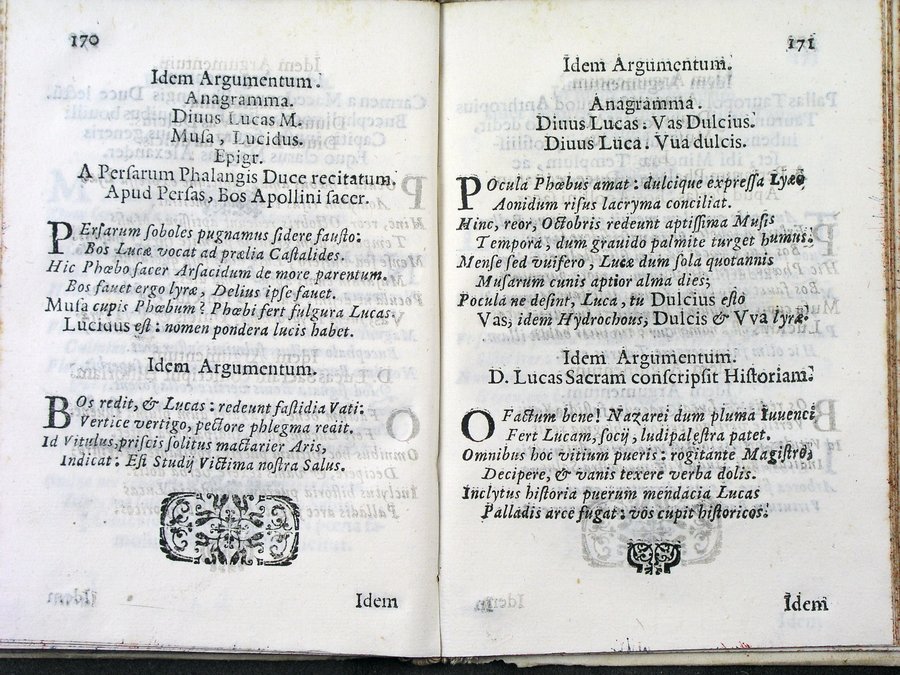 170
Idem Argumentum.
Anagramma.
Diuus Lucas M.
Muſa, Lucidus.
Epigr.
A Perſarum Phalangis Duce recitatum,
Apud Perſas, Bos Apollini ſacer.
PErſarum ſoboles pugnamus ſidere fauſto:
Bos Lucæ vocat ad prælia Caſtalides.
Hic Phœbo ſacer Arſacidum de more parentum.
Bos fauet ergo lyræ, Delius ipſe fauet.
Muſa cupis Phœbum? Phœbi fert fulgura Lucas.
Lucidus eſt: nomen pondera lucis habet.
Idem Argumentum.
BOs redit, & Lucas: redeunt faſtidia Vati:
Vertice vertigo, pectore phlegma redit.
Id Vitulus, priſcis ſolitus mactarier Aris,
Indicat: Eſt Studij Victima noſtra Salus.
Idem
171
Idem Argumentum.
Anagramma.
Diuus Lucas: Vas Dulcius.
Diuus Luca: Vua dulcis.
POcula Phœbus amat: dulcique expreſſa Lyæo
Aonidum riſus lacryma conciliat.
Hinc, reor, Octobris redeunt aptiſſima Muſis
Tempora, dum grauido palmite turget humus.
Menſe ſed vuifero, Lucæ dum ſola quotannis
Muſarum cunis aptior alma dies;
Pocula ne deſint, Luca, tu Dulcius eſto
Vas, idem Hydrochous, Dulcis & Vva lyræ.
Idem Argumentum.
D. Lucas Sacram conſcripſit Hiſtoriam.
O Factum bene! Nazarei dum pluma Iuuenci
Fert Lucam, ſocij, ludipaleſtra patet.
Omnibus hoc vitium pueris: rogitante Magiſtro,
Decipere, & vanis texere verba dolis.
Inclytus hiſtoria puerum mendacia Lucas
Palladis arce fugat: vos cupit hiſtoricos.
Idem